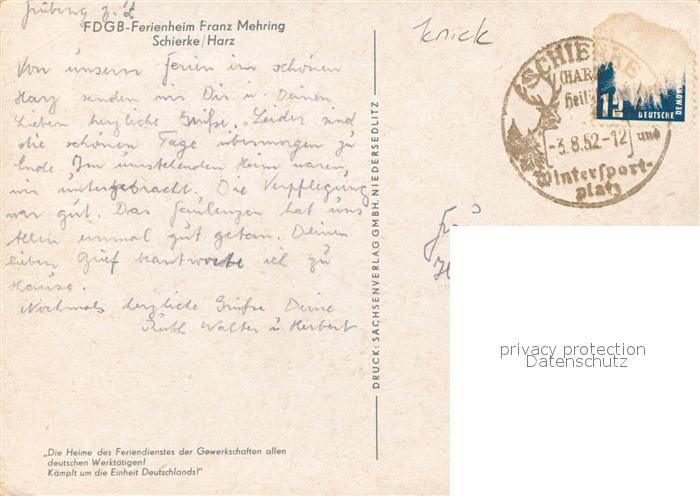 FDGB-Ferienheim Franz Mehring
Schierke/Harz
Von unsern Ferien im schönen
Harz senden wir Dir u. Deinen
Lieben herzliche Grüße. Leider sind
die schönen Tage übermorgen zu
Ende. Im umstehenden Heim waren
wir untergebracht. Die Verpflegung
war gut. Das Faulenzen hat uns
Allen einmal gut getan. Deinen
lieben Brief beantworte ich zu
Hause.
Nochmals herzliche Grüße Deine
Ruth Walter u. Herbert
„Die Heime des Feriendienstes der Gewerkschaften allen
deutschen Werktätigen!
Kämpft um die Einheit Deutschlands!"
DRUCK: SACHSENVERLAG GMBH. NIEDERSEDLITZ
Knick
SCHIERKE
(HAR
Heil
-3.8.52-12
und
Wintersport-
platz
12
DEUTSCHE
DEMO
privacy protection
Datenschutz